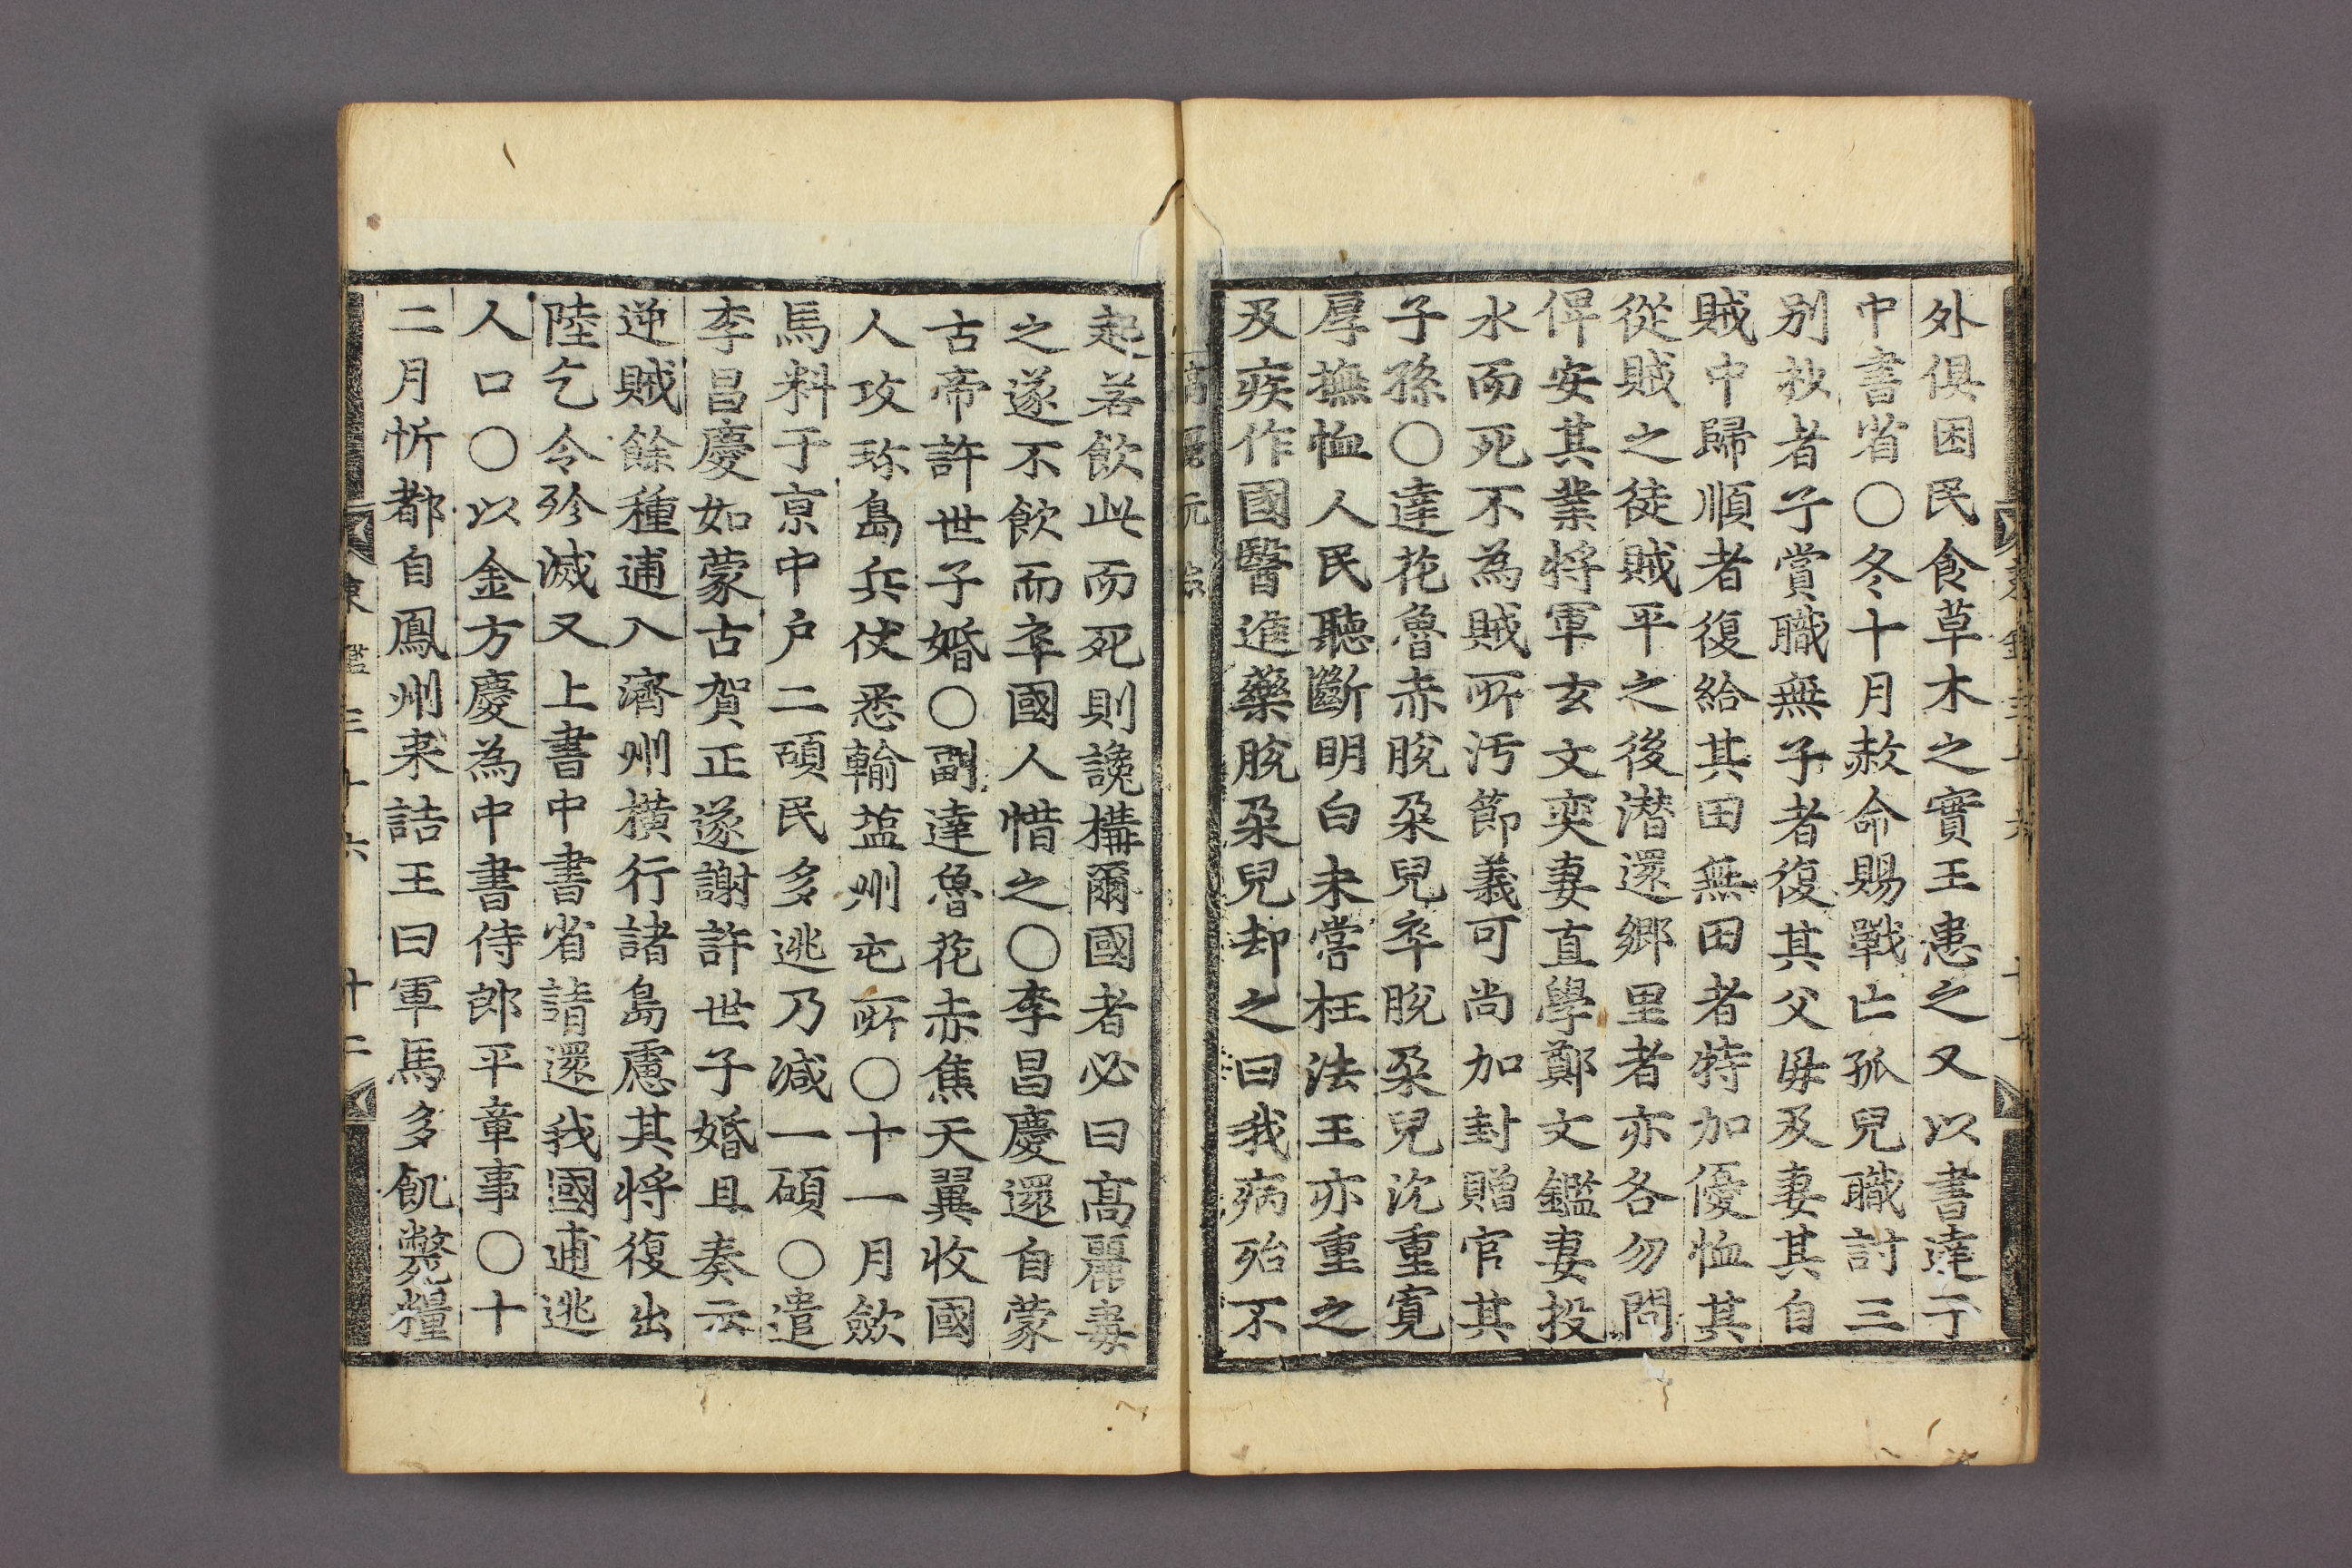 外俱困民食草木之實王患之又以書達于
中書省○冬十月赦命賜戰亡孤兒職討三
别抄者子賞職無子者復其父母及妻其自
賊中歸順者復給其田無田者特加優恤其
從賊之徒賊平之後潜還鄉里者亦各勿問
俾安其業將軍玄文奕妻直學鄭文鑑妻投
水而死不為賊所汚節義可尚加封贈官其
子孫○達花魯赤脫朶兒卒脫朶兒沈重寬
厚撫恤人民聽斷明白未嘗枉法王亦重之
及疾作國醫進藥脫朶兒却之曰我病殆不
起若飮此而死則讒構爾國者必曰高麗毒
之遂不飮而卒國人惜之○李昌慶還自蒙
古帝許世子婚○副達魯花赤焦天翼收國
人攻珎島兵仗悉輸塩州屯所○十一月斂
馬料于京中戶二碩民多逃乃减一碩○遣
李昌慶如蒙古賀正遂謝許世子婚且奏云
逆賊餘種逋入濟州橫行諸島慮其將復出
陸乞令殄滅又上書中書省請還我國逋逃
人口○以金方慶為中書侍郎平章事○十
二月忻都自鳳州来詰王曰軍馬多飢斃糧
東鑑三十六 十二